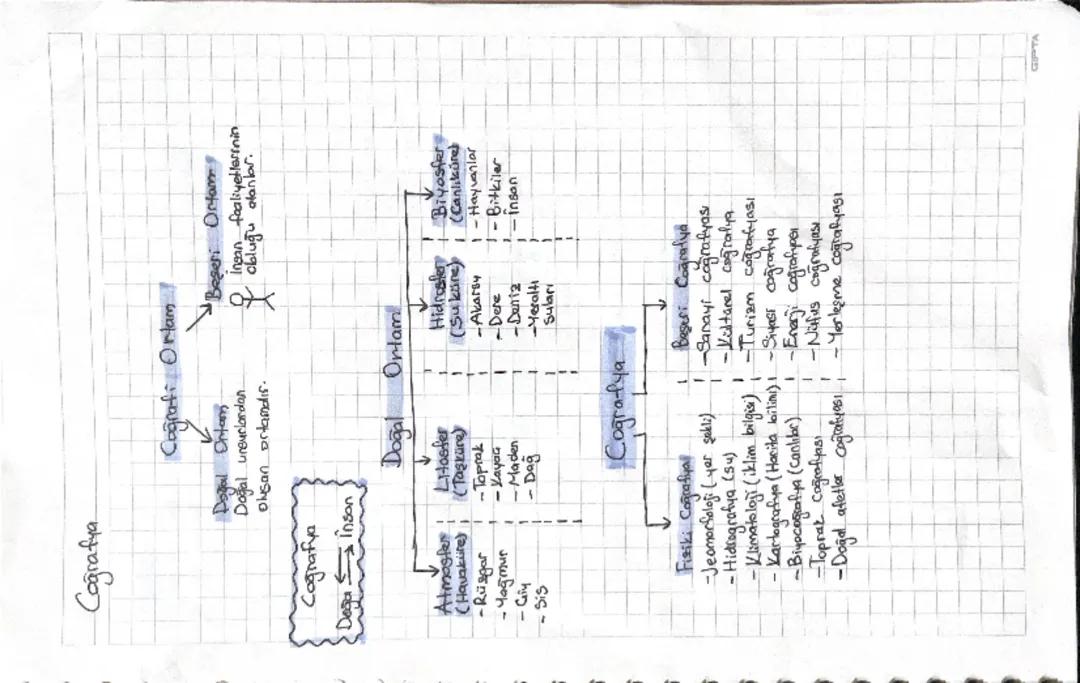 Coğrafya
Coğrafi Ortam
Doğal Ortam
Doğal unsurlardan
oluşan ortamdır.
Beşeri Ortam
İnsan faaliyetlerinin
olduğu alanlar.
Coğrafya
Doğa İnsan
Doğal Ortam
Atmosfer
(Havaküre)
- Rüzgar
- Yağmur
- Çiy
- Sis
Litosfer
(Taşküre)
- Toprak
- Kayaç
- Maden
- Dağ
Hidrosfer
(Su küre)
- Akarsu
- Dere
- Deniz
- Yeraltı
suları
Biyosfer
(Canlıküre)
- Hayvanlar
- Bitkiler
- İnsan
Coğrafya
Fiziki Coğrafya
- Jeomorfoloji (yer şekli)
- Hidrografya (su)
- Klimatoloji (iklim bilgisi)
- Kartografya (Harita bilimi)
- Biyocoğrafya (Canlılar)
- Toprak coğrafyası
- Doğal afetler coğrafyası
Beşeri Coğrafya
- Sanayi coğrafyası
- Kültürel coğrafya
- Turizm coğrafyası
- Siyasi coğrafya
- Enerji coğrafyası
- Nüfus coğrafyası
- Yerleşme coğrafyası
GIPTA